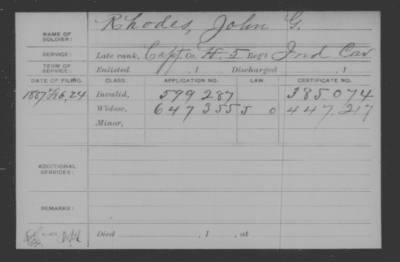 NAME OF SOLDIER: Rhodes, John G.
SERVICE: Late rank, Capt. Co. H. 5 Reg't Ind Cav
TERM OF SERVICE: Enlisted , 1 Discharged , 1
DATE OF FILING. CLASS. APPLICATION NO. LAW. CERTIFICATE NO.
1887 24 Invalid, 599 287 385.074
Widow, 647 355 5 0 447.217
Minor,
ADDITIONAL SERVICES:
REMARKS:
Died , 1 , at